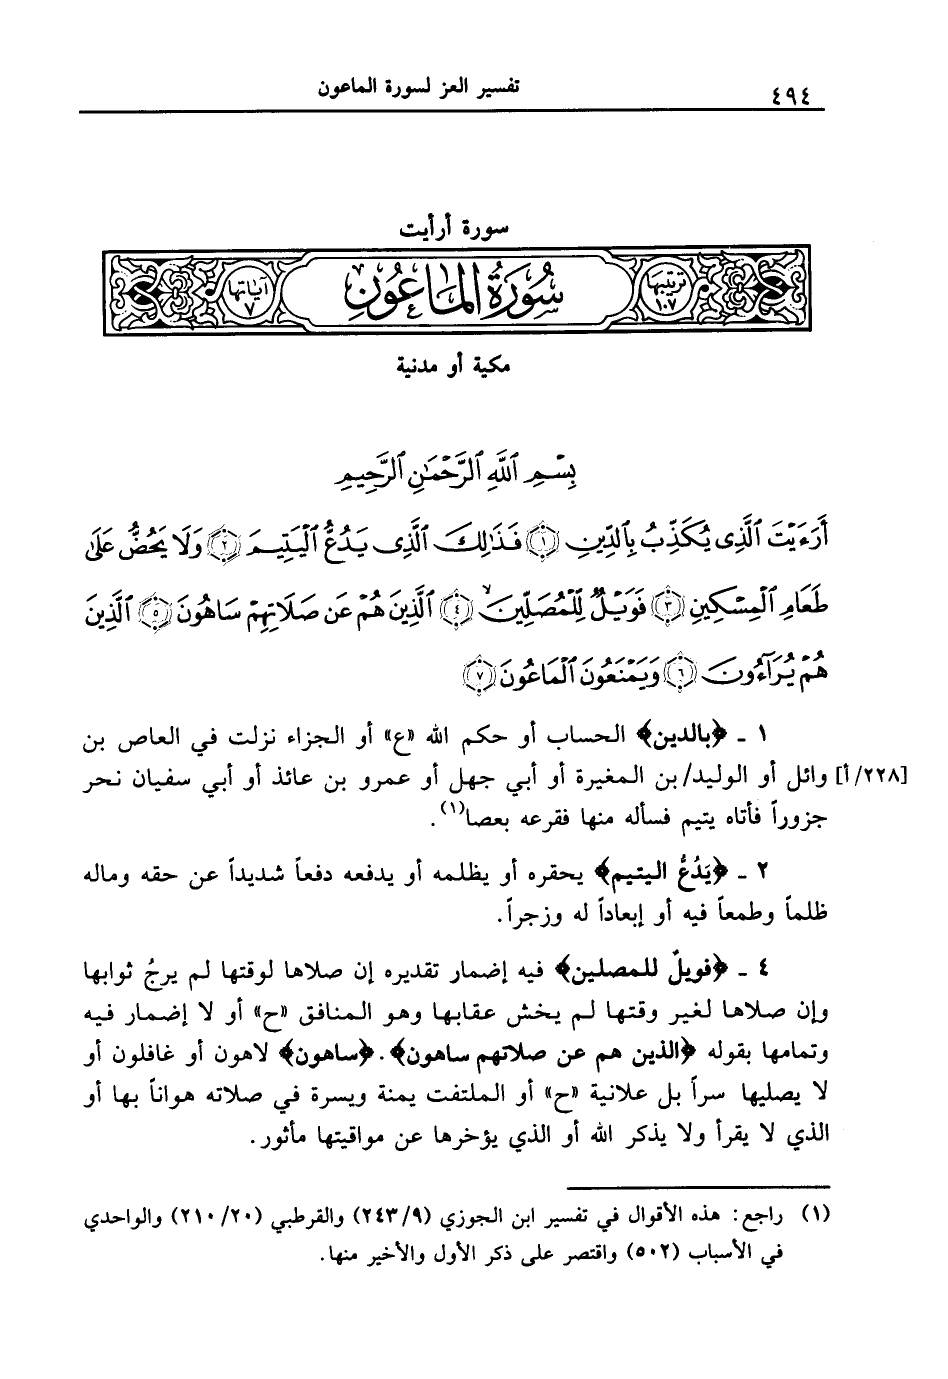 ٤٩٤
تفسير العز لسورة الماعون
سورة أرأيت
ترتيبها ١٠٧ سُورَةُ المَاعُونِ آياتها ٧
مكية أو مدنية
بِسْمِ ٱللَّهِ ٱلرَّحْمَٰنِ ٱلرَّحِيمِ
أَرَءَيْتَ ٱلَّذِى يُكَذِّبُ بِٱلدِّينِ ١ فَذَٰلِكَ ٱلَّذِى يَدُعُّ ٱلْيَتِيمَ ٢ وَلَا يَحُضُّ عَلَىٰ
طَعَامِ ٱلْمِسْكِينِ ٣ فَوَيْلٌ لِّلْمُصَلِّينَ ٤ ٱلَّذِينَ هُمْ عَن صَلَاتِهِمْ سَاهُونَ ٥ ٱلَّذِينَ
هُمْ يُرَآءُونَ ٦ وَيَمْنَعُونَ ٱلْمَاعُونَ ٧
١ ـ ﴿بالدين﴾ الحساب أو حكم الله «ع» أو الجزاء نزلت في العاص بن
[٢٢٨/أ] وائل أو الوليد/ بن المغيرة أو أبي جهل أو عمرو بن عائذ أو أبي سفيان نحر
جزوراً فأتاه يتيم فسأله منها فقرعه بعصا(١).
٢ ـ ﴿يَدُعُّ اليتيم﴾ يحقره أو يظلمه أو يدفعه دفعاً شديداً عن حقه وماله
ظلماً وطمعاً فيه أو إبعاداً له وزجراً.
٤ ـ ﴿فويلٌ للمصلين﴾ فيه إضمار تقديره إن صلاها لوقتها لم يرجُ ثوابها
وإن صلاها لغير وقتها لم يخش عقابها وهو المنافق «ح» أو لا إضمار فيه
وتمامها بقوله ﴿الذين هم عن صلاتهم ساهون﴾. ﴿ساهون﴾ لاهون أو غافلون أو
لا يصليها سراً بل علانية «ح» أو الملتفت يمنة ويسرة في صلاته هواناً بها أو
الذي لا يقرأ ولا يذكر الله أو الذي يؤخرها عن مواقيتها مأثور.
(١) راجع: هذه الأقوال في تفسير ابن الجوزي (٢٤٣/٩) والقرطبي (٢١٠/٢٠) والواحدي
في الأسباب (٥٠٢) واقتصر على ذكر الأول والأخير منها.